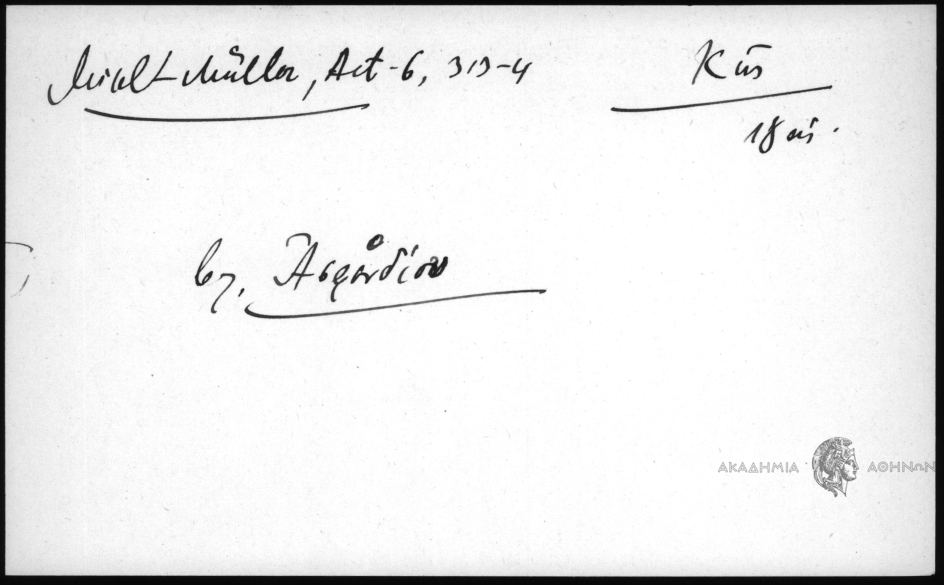 Mikl-Müller, Act-6, 313-4
Κῶς
18 αἰ.
βλ. Ἀσφενδίου
ΑΚΑΔΗΜΙΑ ΑΘΗΝΩΝ